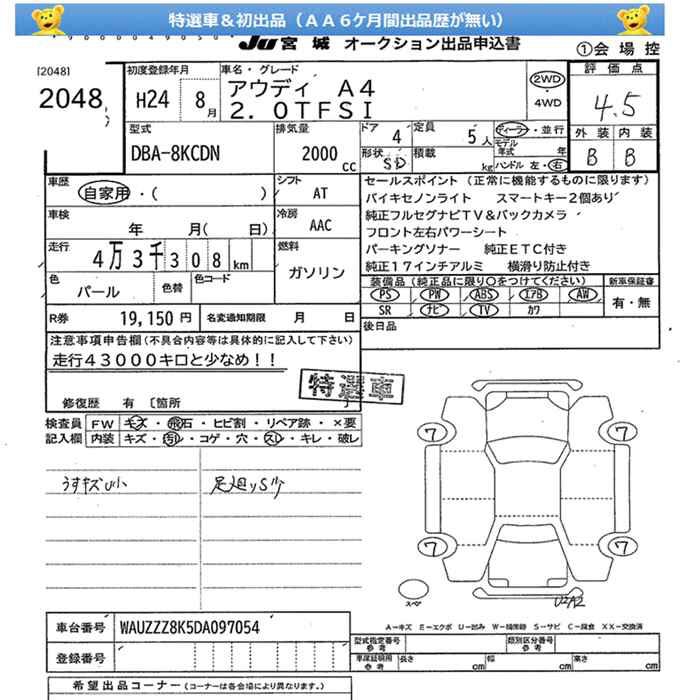 特選車&初出品(AA6ケ月間出品歴が無い)
Ju 宮城 オークション出品申込書
①会場控
[2048]
2048
初度登録年月
H24 8月
車名・グレード
アウディ A4
2.0TFSI
2WD
・
4WD
評価点
4.5
外装 内装
B B
型式
DBA-8KCDN
排気量
2000 cc
ドア 4
定員 5人
形状 SD
積載 kg
ディーラー・並行
モデル年式 年
ハンドル 左・右
車歴
自家用・( )
シフト AT
車検
年 月( 日)
冷房 AAC
走行
4万3千308km
燃料
ガソリン
色
パール
色替
色コード
R券 19,150円
名変通知期限 月 日
セールスポイント(正常に機能するものに限ります)
バイキセノンライト スマートキー2個あり
純正フルセグナビTV&バックカメラ
フロント左右パワーシート
パーキングソナー 純正ETC付き
純正17インチアルミ 横滑り防止付き
装備品(純正品に限り○をつけてください)
新車保証書
PS PW ABS エアB AW
SR ナビ TV カワ
有・無
後日品
注意事項申告欄(不具合内容等は具体的に記入して下さい)
走行43000キロと少なめ!!
特選車
修復歴 有 〔箇所 〕
検査員記入欄
FW キズ・飛石・ヒビ割・リペア跡・×要
内装 キズ・汚レ・コゲ・穴・スレ・キレ・破レ
うすキズU小
足廻りS少
7 7
7 7
スペア
U2A2
A-キズ E-エクボ U-凹み W-補修跡 S-サビ C-腐食 XX-交換済
車台番号 WAUZZZ8K5DA097054
登録番号
型式指定番号 参考
類別区分番号 参考
車庫証明用 参考 長さ cm 幅 cm 高さ cm
希望出品コーナー(コーナーは各会場により異なります。)